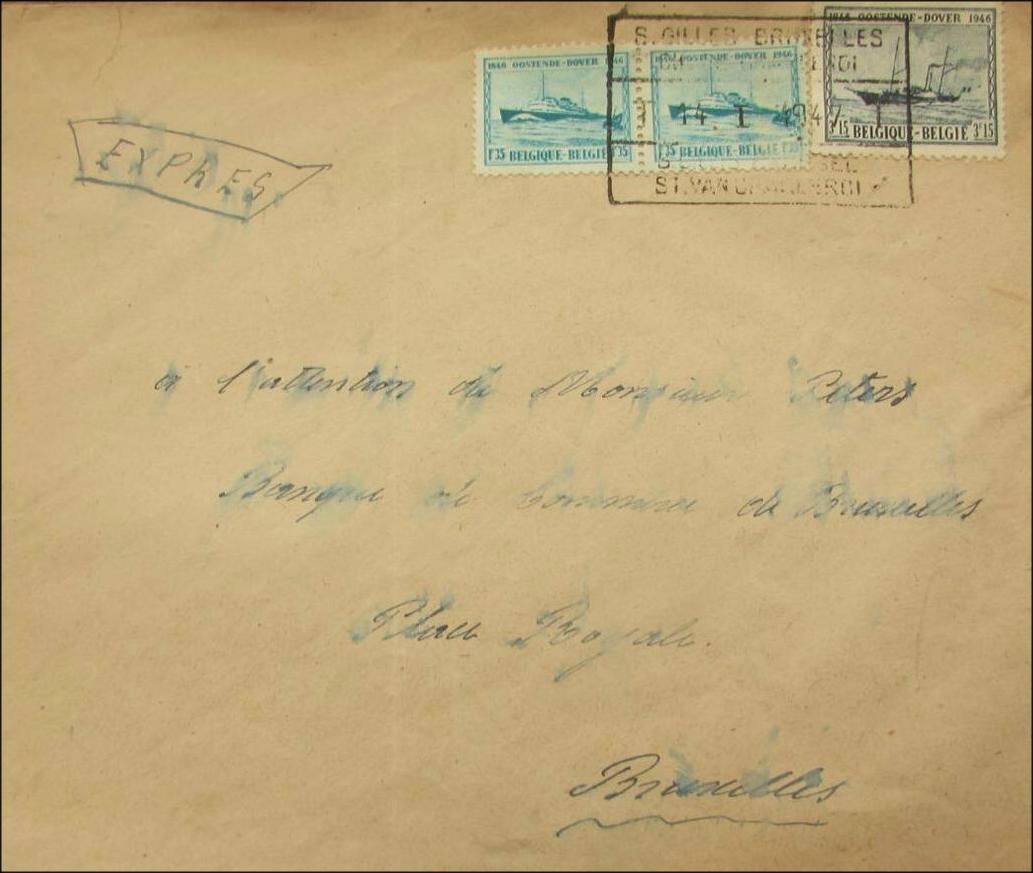 S.GILLES BRUXELLES
1846 OOSTENDE-DOVER 1946
1846 OOSTENDE-DOVER 1946
1846 OOSTENDE-DOVER 1946
14. I 1947
1F35 BELGIQUE-BELGIË 1F35
1F35 BELGIQUE-BELGIË 1F35
3F15 BELGIQUE-BELGIË 3F15
ST. VAN CHARLEROI
EXPRES
à l'attention de Monsieur Peters
Banque de Commerce de Bruxelles
Place Royale.
Bruxelles